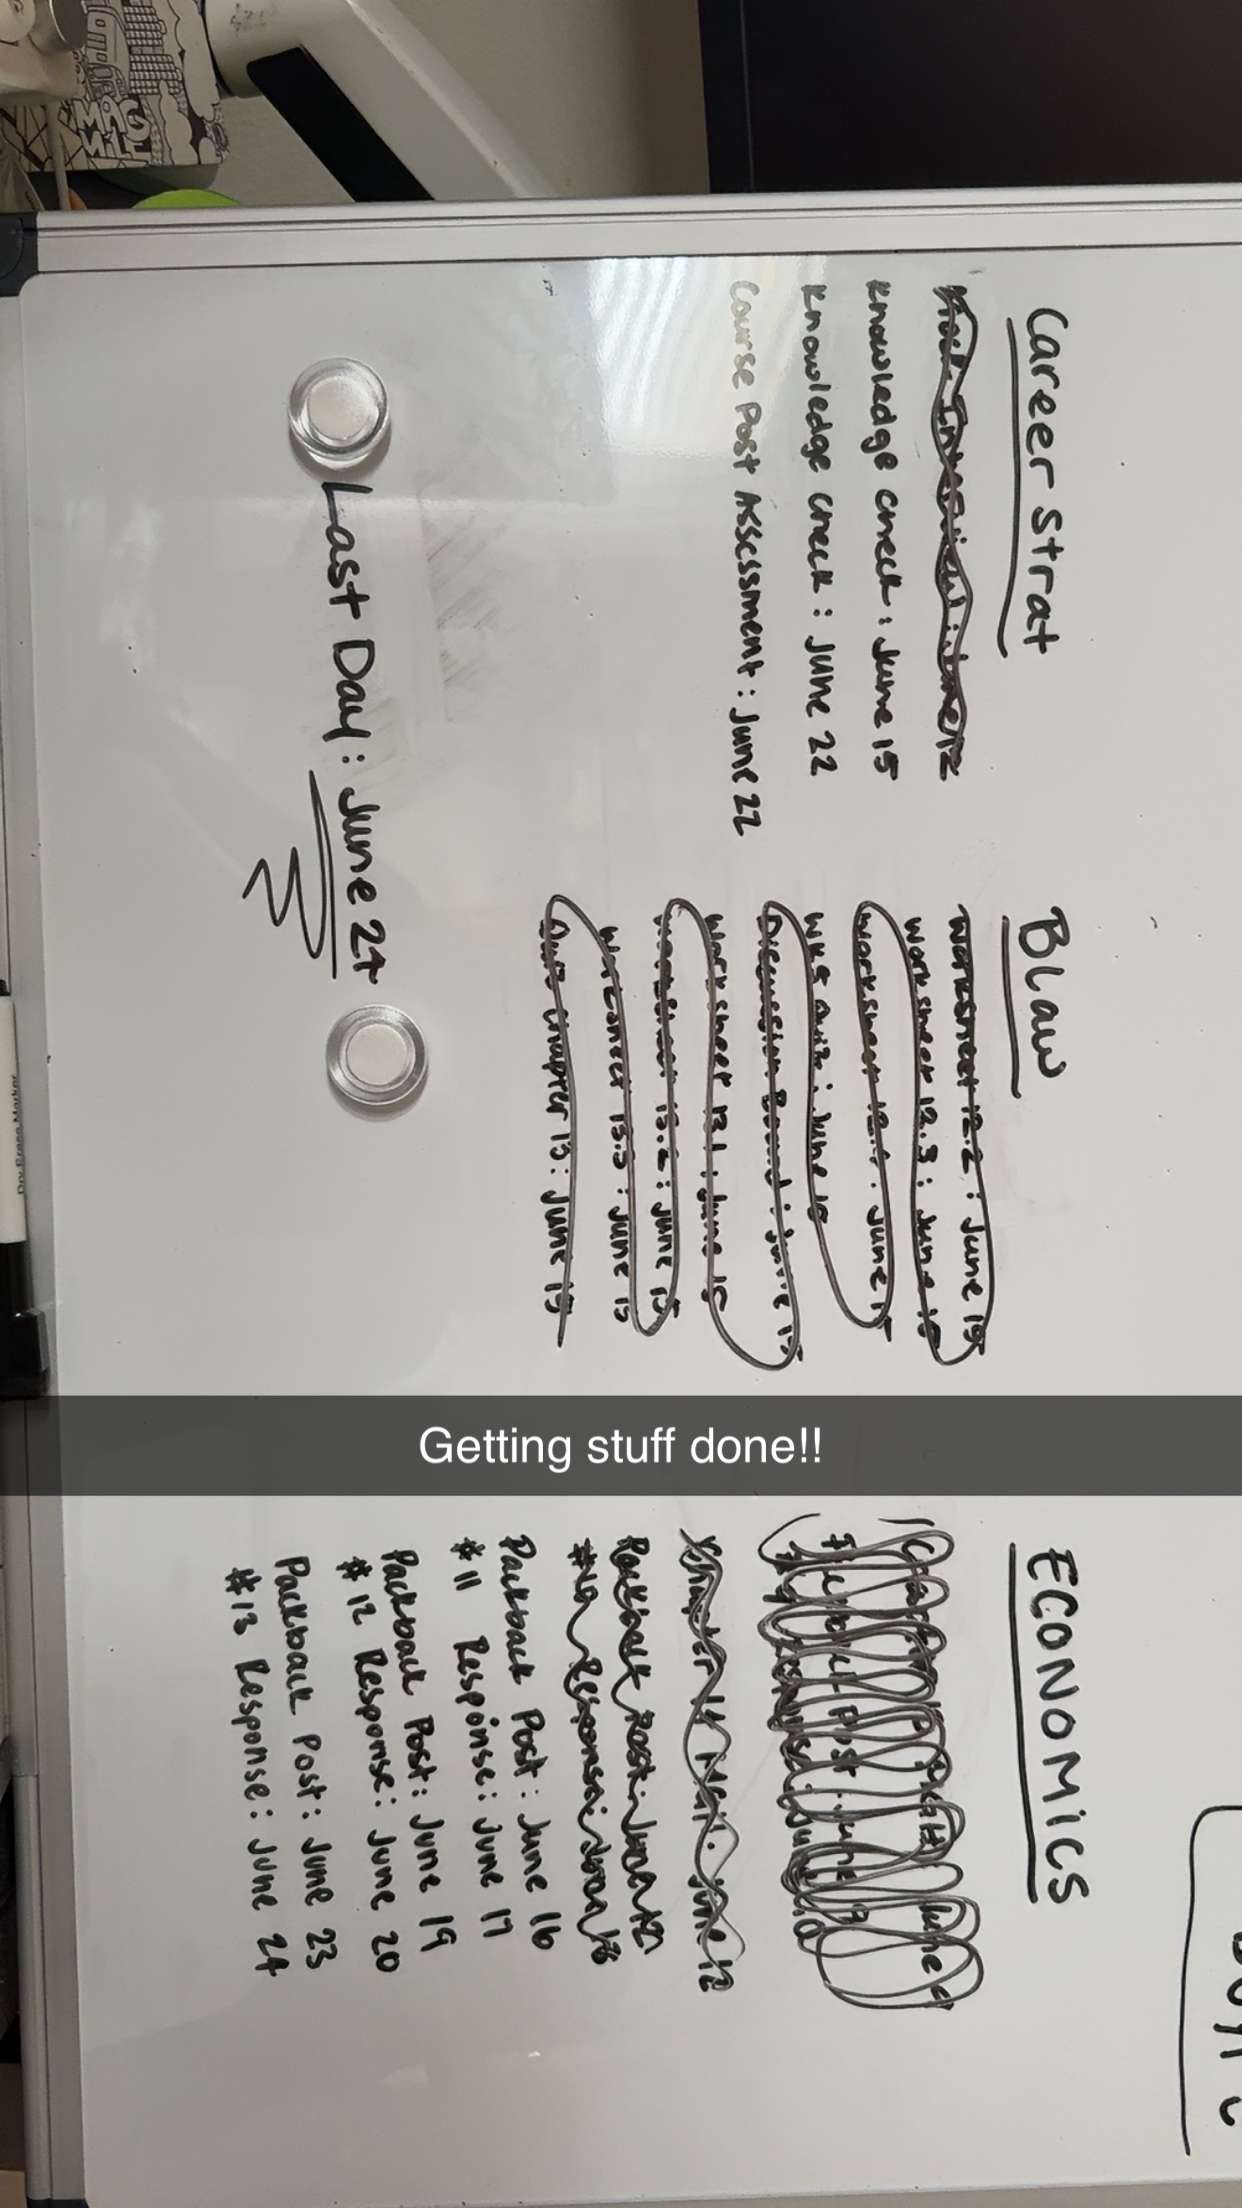 MAG
MILE
Career Strat
Mock Interview: June 12
Knowledge check: June 15
Knowledge check: June 22
Course Post Assessment: June 22
Last Day: June 24
Blaw
Worksheet 12.2: June 15
Worksheet 12.3: June 15
Worksheet 12.4: June 15
Wk 5 Quiz: June 15
Discussion Board: June 15
Worksheet 13.1: June 15
Worksheet 13.2: June 15
Worksheet 13.3: June 15
Quiz Chapter 13: June 15
Getting stuff done!!
ECONOMICS
Packback Post: June
Response: June
Packback Post: June 16
#11 Response: June 17
Packback Post: June 19
#12 Response: June 20
Packback Post: June 23
#13 Response: June 24
Dry Erase Marker